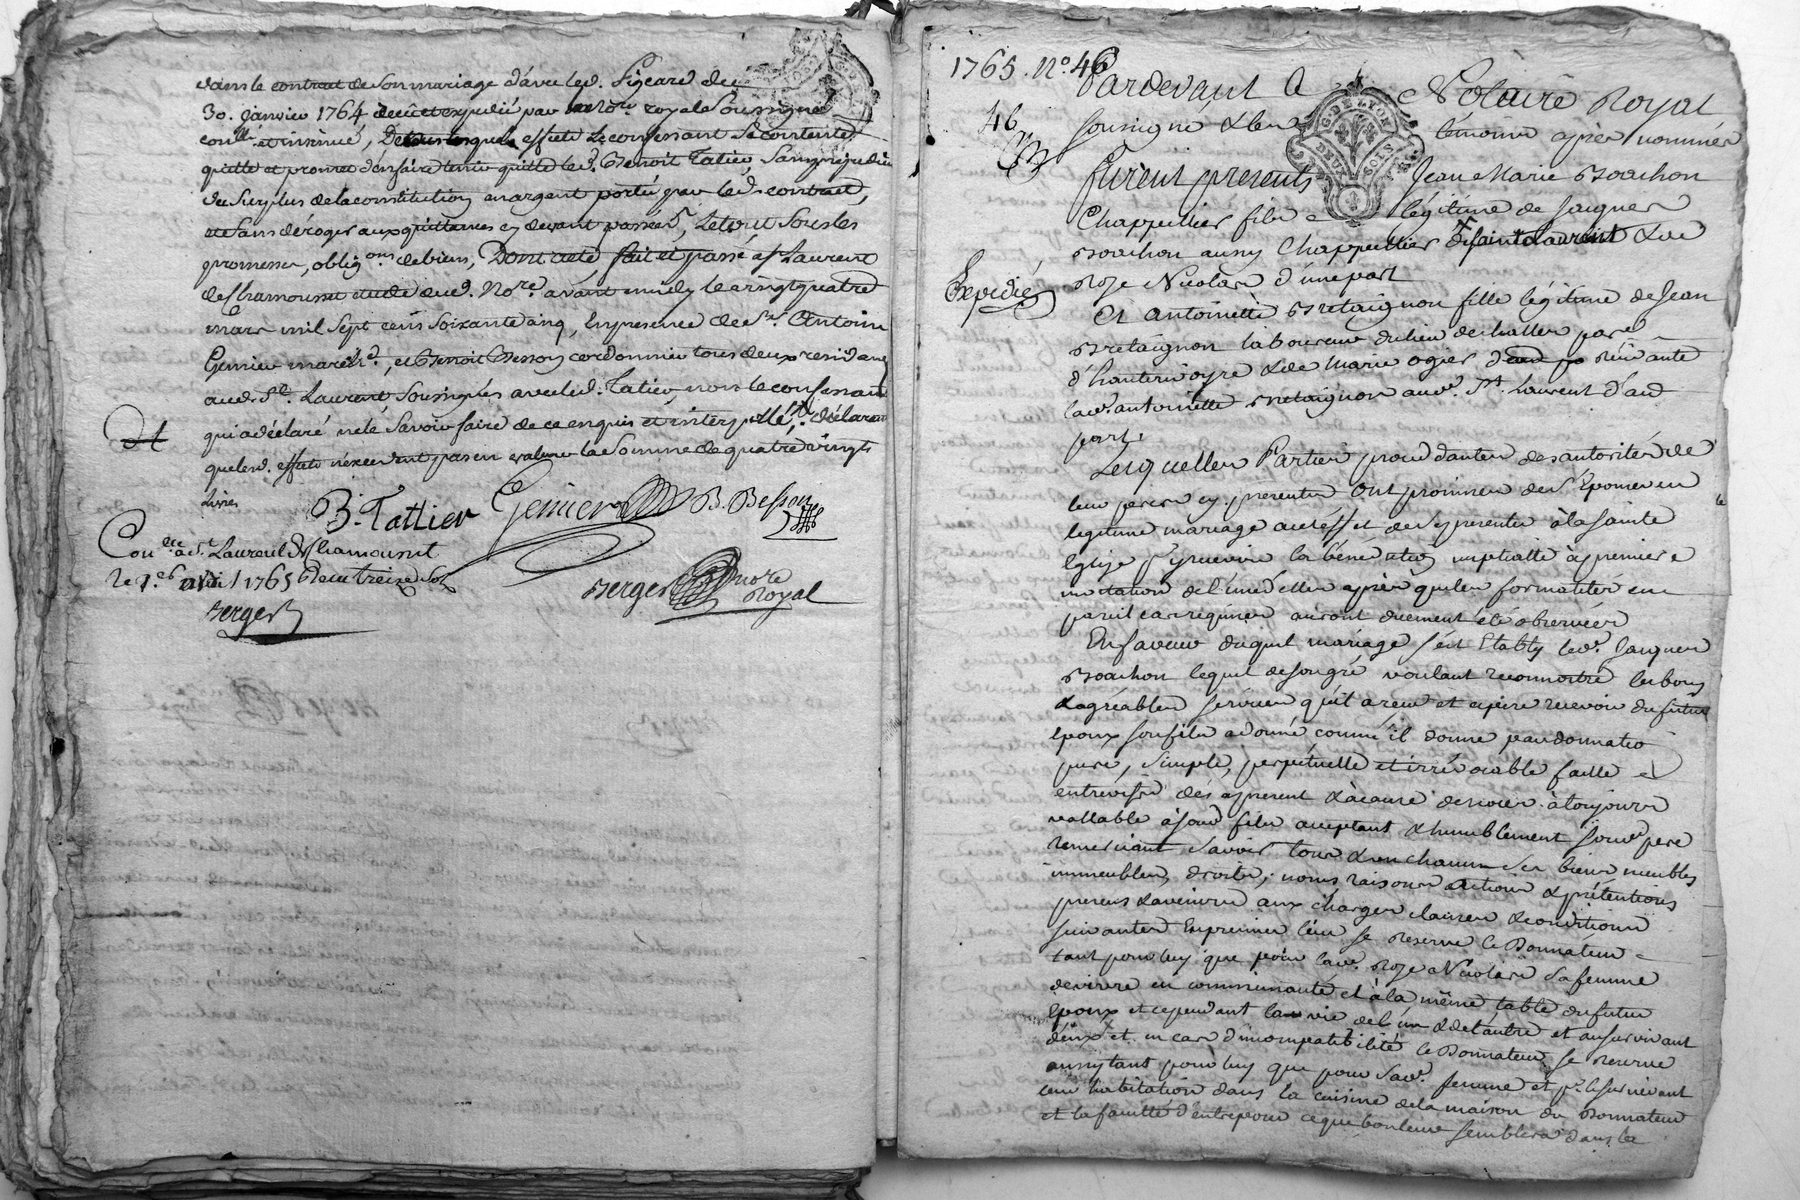 dans le contrat de son mariage d'avec led. Pigeard du
30. janvier 1764 receu et expedié par le nore. royal soussigné
conllé. et insinué, Desquels effets le confessant se contente
quitte et promet d'en faire tenir quitte led. Benoit Tatier, sans prejudice
du surplus de la constitution en argent portée par led. contrat,
et sans déroger aux quittances cy devant passées, Le tout sous les
promesses, obligons. de biens, Dont acte fait et passé a St Laurent
de Chamousset etude dud. Nore. avant midy le vingt quatre
mars mil sept cens soixante cinq, En presence de Sr. Antoine
Genier march.d, et Benoit Besson cordonnier tous deux residants
aud. St. Laurent soussignés avec led. Tatier, non le confessant
qui a déclaré ne le savoir faire de ce enquis et interpellé, declarant
que lesd. effets n'excedent pas en valeur la somme de quatre vingts
Livres
B. Tattier Genier B. Besson
Conllé a St Laurent de Chamousset
le 1.er avril 1765 Receu treize sols
Berger
Berger nore Royal
1765. No. 46
46
Expedié
Pardevant Le Notaire Royal
soussigné & les témoins après nommés
furent presents Jean Marie Boachon
Chappellier fils légitime de Jaques
Boachon aussy Chappellier de Saint Laurent & de
Roze Nicolas d'une part
Et Antoinette Bretaignon fille légitime de Jean
Bretaignon laboureur du lieu de halles paroe.
d'hauterivoyre & de Marie ogier résidante
lad. antoinette Bretaignon aud. St. Laurent d'aut
part.
Lesquelles Parties procedantes des autorités de
leur peres cy presentes Ont promises de s'Epouser en
legitime mariage a cet effet de se presenter à la sainte
Eglise pr. y recevoir la bénédiction nuptialle à premiere
invitation de l'une d'elles après que les formalités en
pareil cas requises auront duement été observées
En faveur duquel mariage s'est Etably led. Jaques
Boachon lequel de son gré voulant reconnoitre les bons
& agréables services qu'il a receu et espere recevoir du futur
epoux son fils a donné comme il donne par donnatio
pure, simple, perpétuelle et irrévocable faitte
entrevifs dès apresent & à cause de noces à toujours
vallable a sond. fils acceptant & humblement sond. pere
remerciant savoir tous & un chacun ses biens meubles
immeubles, droits, noms raisons actions & prétentions
presens & avenirs aux charges clauses & conditions
suivantes Exprimées l'une se reserve le Donnateur
tant pour luy que pour lad. Roze Nicolas sa femme
de vivre en communauté et à la même table du futur
Epoux et ce pendant la vie de l'un & de l'autre et au survivant
d'eux et en cas d'incompatibilité le Donnateur se reserve
aussy tant pour luy que pour sad. femme et pr. le survivant
leur habitation dans la cuisine de la maison du Donnateur
et la faculté d'entreposer ce que bon leur semblera dans la